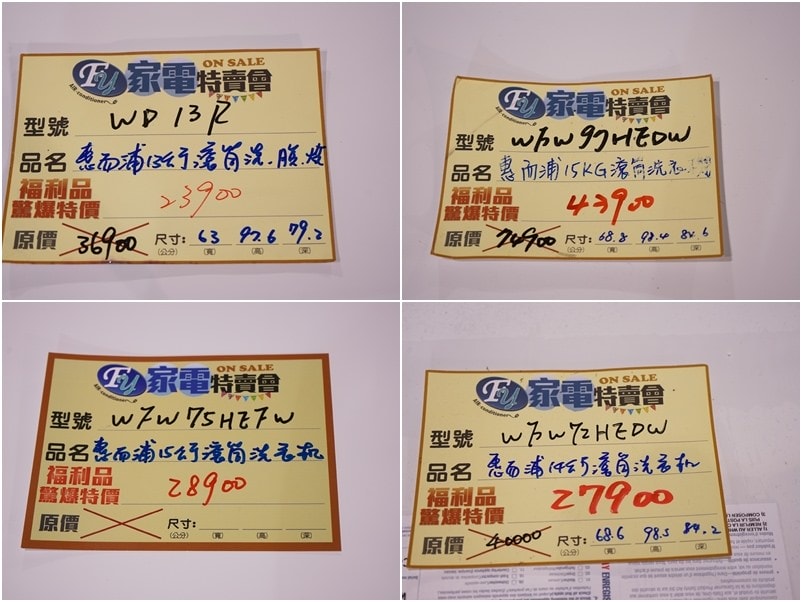 FY 家電特賣會 ON SALE
AIR-conditioner
型號 WD 13R
品名 惠而浦13公斤滾筒洗、脫、烘
福利品
驚爆特價 23900
原價 36900 尺寸: 63 92.6 79.2
(公分) (寬) (高) (深)
FY 家電特賣會 ON SALE
AIR-conditioner
型號 WFW97HEDW
品名 惠而浦15KG滾筒洗衣機
福利品
驚爆特價 43900
原價 74900 尺寸: 68.8 98.4 84.6
(公分) (寬) (高) (深)
FY 家電特賣會 ON SALE
AIR-conditioner
型號 WFW75HEFW
品名 惠而浦15公斤滾筒洗衣机
福利品
驚爆特價 28900
原價 尺寸:
(公分) (寬) (高) (深)
FY 家電特賣會 ON SALE
AIR-conditioner
型號 WFW72HEDW
品名 惠而浦14公斤滾筒洗衣机
福利品
驚爆特價 27900
原價 40000 尺寸: 68.6 98.5 84.2
(公分) (寬) (高) (深)